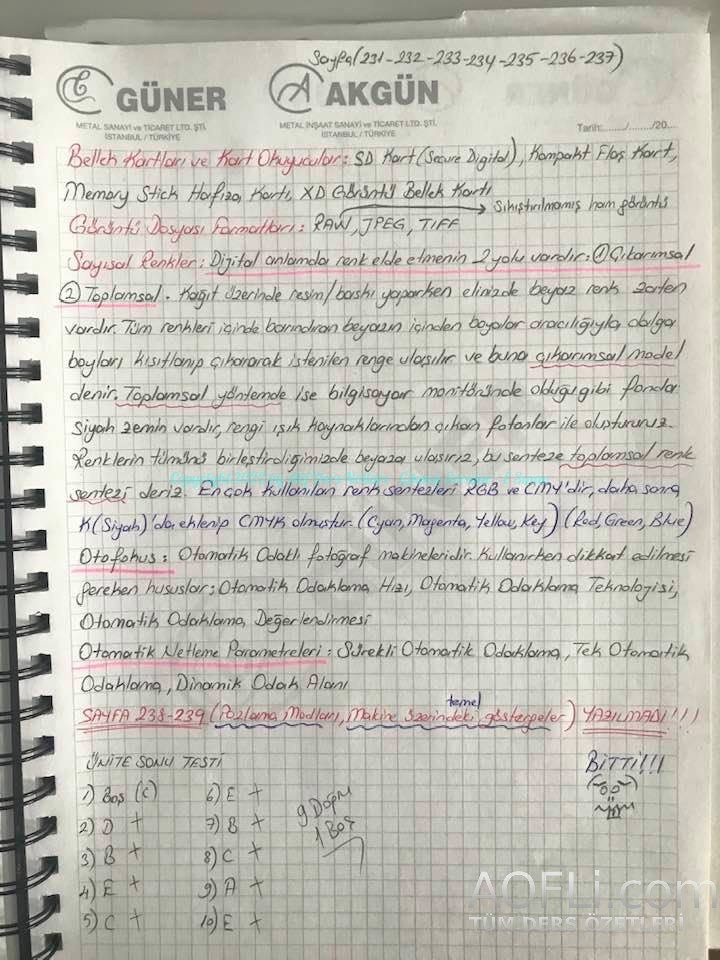 Sayfa (231-232-233-234-235-236-237)
GÜNER
METAL SANAYİ ve TİCARET LTD. ŞTİ.
İSTANBUL / TÜRKİYE
AKGÜN
METAL İNŞAAT SANAYİ ve TİCARET LTD. ŞTİ.
İSTANBUL / TÜRKİYE
Tarih:......../......../20....
Bellek Kartları ve Kart Okuyucular: SD Kart (Secure Digital), Kompakt Flaş Kart,
Memory Stick Hafıza Kartı, XD Görüntü Bellek Kartı
Görüntü Dosyası Formatları: RAW, JPEG, TIFF → Sıkıştırılmamış ham görüntü
Sayısal Renkler: Dijital anlamda renk elde etmenin 2 yolu vardır: ① Çıkarımsal
② Toplamsal. Kağıt üzerinde resim/baskı yaparken elinizde beyaz renk zaten
vardır. Tüm renkleri içinde barındıran beyazın içinden boyalar aracılığıyla dalga
boyları kısıtlanıp çıkararak istenilen renge ulaşılır ve buna çıkarımsal model
denir. Toplamsal yöntemde ise bilgisayar monitöründe olduğu gibi fonda
siyah zemin vardır, rengi ışık kaynaklarından çıkan fotonlar ile oluştururuz.
Renklerin tümünü birleştirdiğimizde beyaza ulaşırız, bu senteze toplamsal renk
sentezi deriz. En çok kullanılan renk sentezleri RGB ve CMY'dir, daha sonra
K(Siyah)'da eklenip CMYK olmuştur. (Cyan, Magenta, Yellow, Key) (Red, Green, Blue)
Otofokus: Otomatik Odaklı fotoğraf makineleridir. Kullanırken dikkat edilmesi
gereken hususlar: Otomatik Odaklama Hızı, Otomatik Odaklama Teknolojisi,
Otomatik Odaklama Değerlendirmesi
Otomatik Netleme Parametreleri: Sürekli Otomatik Odaklama, Tek Otomatik
Odaklama, Dinamik Odak Alanı
SAYFA 238-239 (Pozlama Modları, Makine üzerindeki temel göstergeler) YAZILMADI!!!
ÜNİTE SONU TESTİ
BİTTİ!!!
1) Boş (C) 6) E +
2) D + 7) B +
3) B + 8) C +
4) E + 9) A +
5) C + 10) E +
9 Doğru
1 Boş
AOFLi.com
TÜM DERS ÖZETLERİ